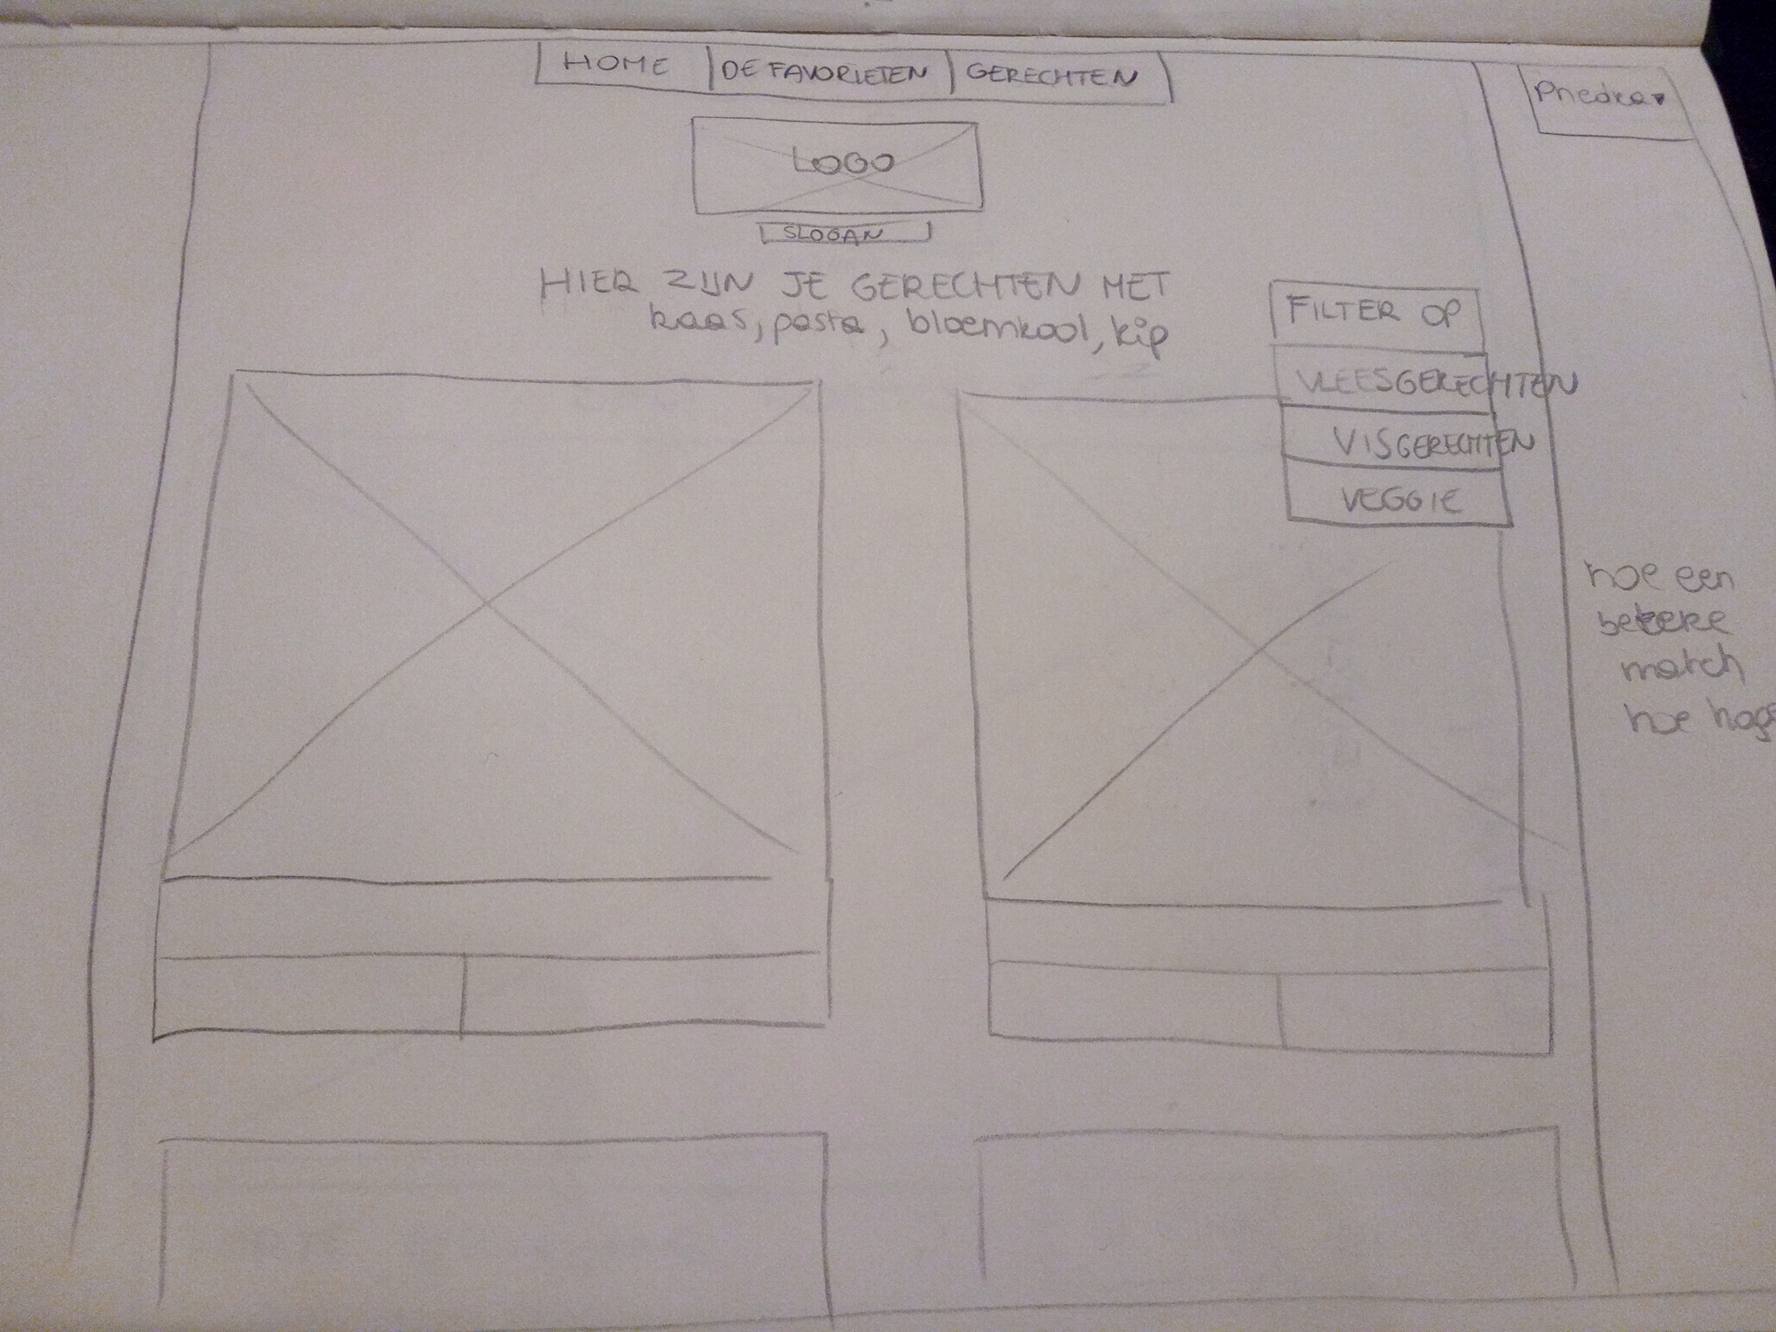 HOME
DE FAVORIETEN
GERECHTEN
LOGO
SLOGAN
HIER ZIJN JE GERECHTEN MET
kaas, pasta, bloemkool, kip
FILTER OP
VLEESGERECHTEN
VISGERECHTEN
VEGGIE
hoe een
betere
match
hoe hoge